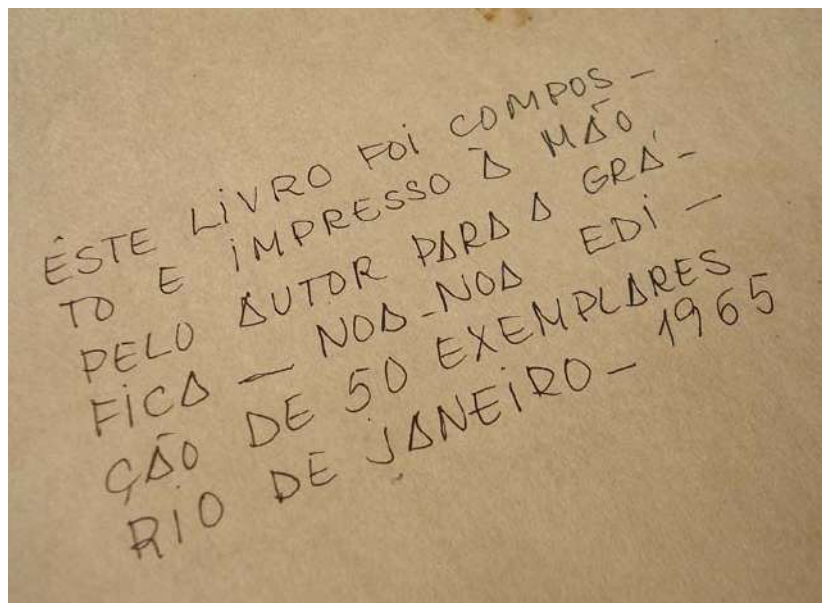 ÊSTE LIVRO FOI COMPOS-
TO E IMPRESSO À MÃO
PELO AUTOR PARA A GRÁ-
FICA — NOA-NOA EDI-
ÇÃO DE 50 EXEMPLARES
RIO DE JANEIRO - 1965